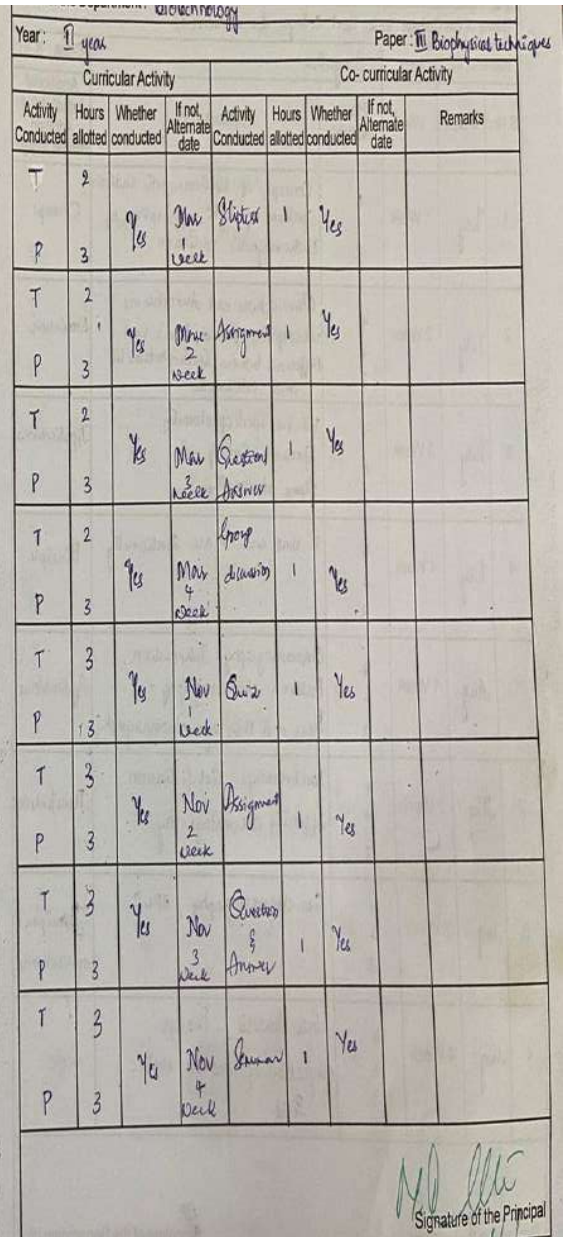 Biotechnology
Year: II year Paper: III Biophysical techniques
Curricular Activity Co- curricular Activity
Activity Conducted Hours allotted Whether conducted If not, Alternate date Activity Conducted Hours allotted Whether conducted If not, Alternate date Remarks
T 2
Yes week 1 Yes
P 3
T 2
Yes 2 week Assignment 1 Yes
P 3
T 2
Yes Mar 3 week Question Answer 1 Yes
P 3
T 2
Yes Mar 4 week Group discussion 1 Yes
P 3
T 3
Yes Nov 1 week Quiz 1 Yes
P 3
T 3
Yes Nov 2 week Assignment 1 Yes
P 3
T 3
Yes Nov 3 week Question & Answer 1 Yes
P 3
T 3
Yes Nov 4 week Seminar 1 Yes
P 3
Signature of the Principal